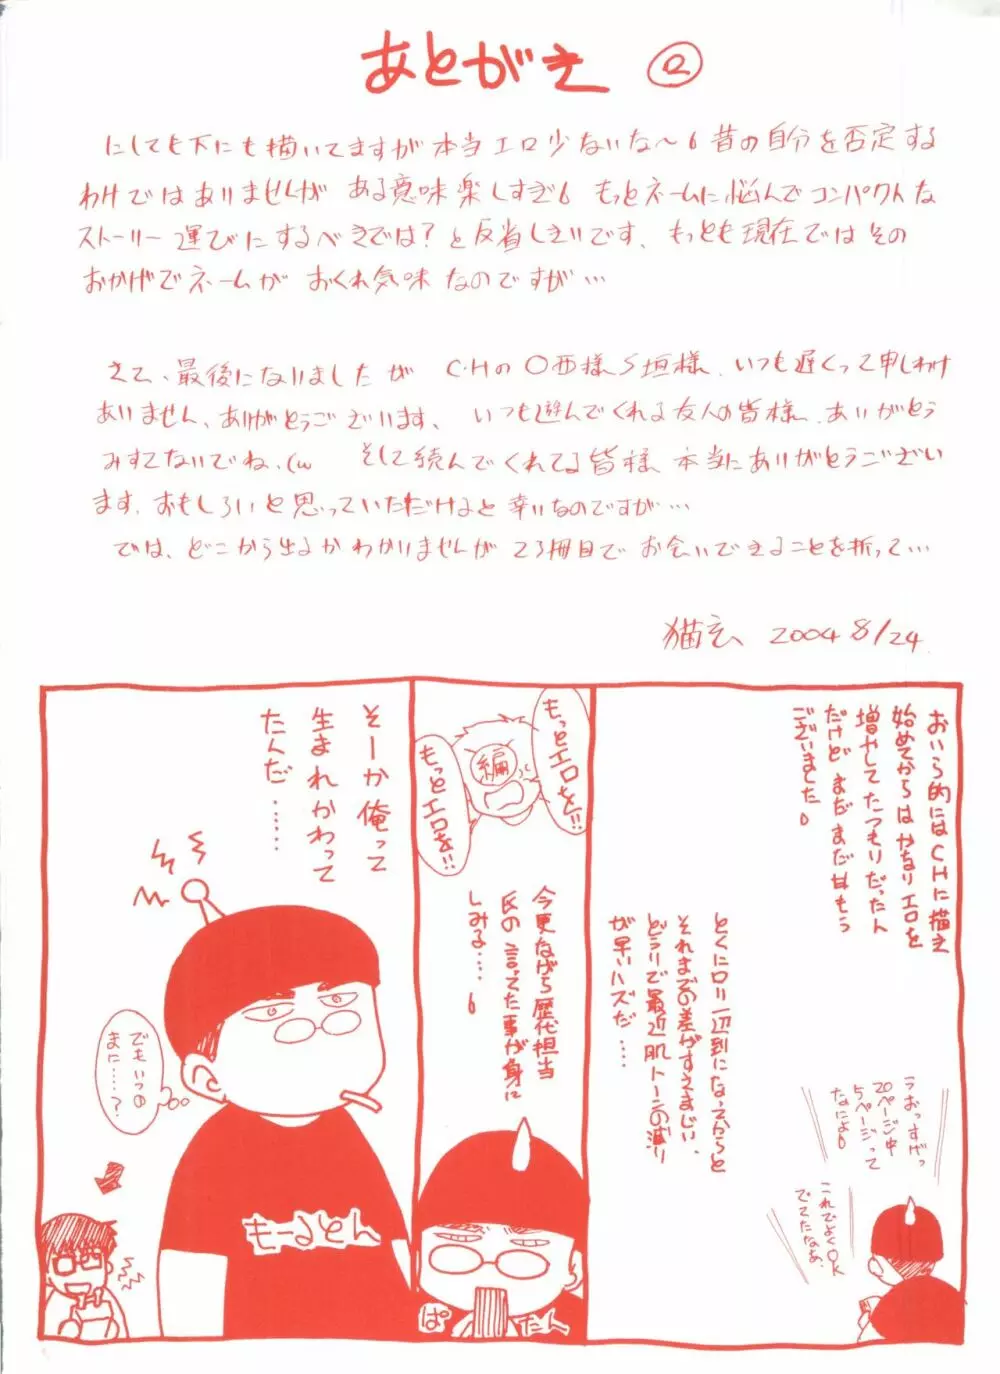 あとがき ②
にしても下にも描いてますが本当エロ少ないな〜。昔の自分を否定する
わけではありませんが ある意味楽しすぎ。もっとネームに悩んでコンパクトな
ストーリー運びにするべきでは？と反省しきりです、もっとも現在ではその
おかげでネームが おくれ気味なのですが…
さて、最後になりましたが C・Hの〇西様S垣様、いつも遅くって申しわけ
ありません、ありがとうございます、いつも遊んでくれる友人の皆様、ありがとう
みすてないでね、(w そして読んでくれてる皆様本当にありがとうござい
ます、おもしろいと思っていただけると幸いなのですが…
では、どこから出るかわかりませんが 23冊目で お会いできることを祈って…
猫玄 2004 8/24
おいら的にはCHに描き
始めてからはかなりエロを
増やしてたつもりだったん
だけど まだまだ甘もう
ございました。
うおっすげっ
20ページ中
5ページって
なによ。
これでよくOK
でてたなあ、
とくにロリ一辺到になってからと
それまでの差がすさまじい、
どうりで最近肌トーンの減り
が早いハズだ……
もっとエロを!!
編
もっとエロを!!
今更ながら歴代担当
氏の言ってた事が身に
しみる……。
ぱたん
そーか俺って
生まれかわって
たんだ……
でもいつの
まに……？
もーるとん